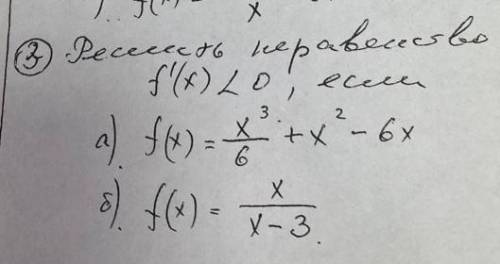 ). f(x) = x
③ Решить неравенство
f'(x) < 0, если
а). f(x) = x³/6 + x² - 6x
б). f(x) = x/(x-3).